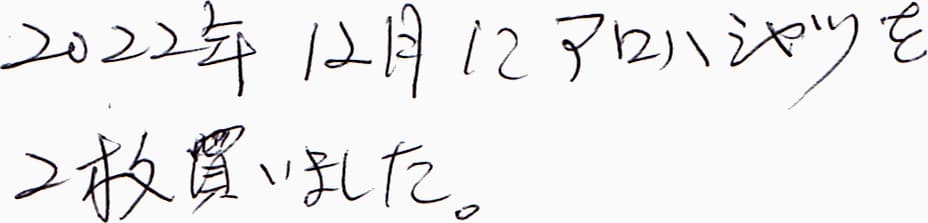 2022年12月にアロハシャツを
2枚買いました。